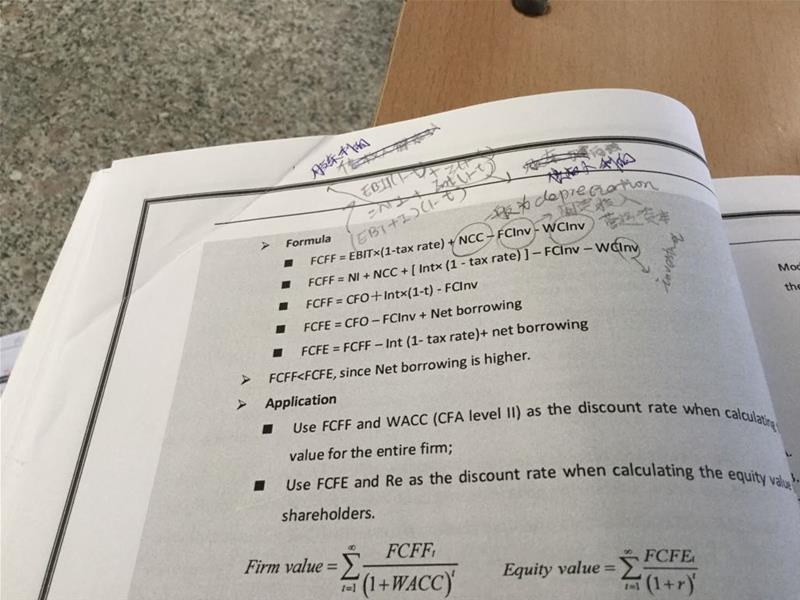 股东利的
EBIT(1-t)
=NI + Int(1-t)
(EBT+I)(1-t)
一般为depreciation
Formula
FCFF = EBIT×(1-tax rate) + NCC – FCInv - WCInv
FCFF = NI + NCC + [ Int× (1 - tax rate) ] – FCInv – WCInv
FCFF = CFO＋Int×(1-t) - FCInv
FCFE = CFO – FCInv + Net borrowing
FCFE = FCFF – Int (1- tax rate)+ net borrowing
FCFF<FCFE, since Net borrowing is higher.
Application
Use FCFF and WACC (CFA level II) as the discount rate when calculating
value for the entire firm;
Use FCFE and Re as the discount rate when calculating the equity value
shareholders.
Firm value = ∑_{t=1}^{∞} FCFF_t / (1+WACC)^t
Equity value = ∑_{t=1}^{∞} FCFE_t / (1+r)^t
Mod
the